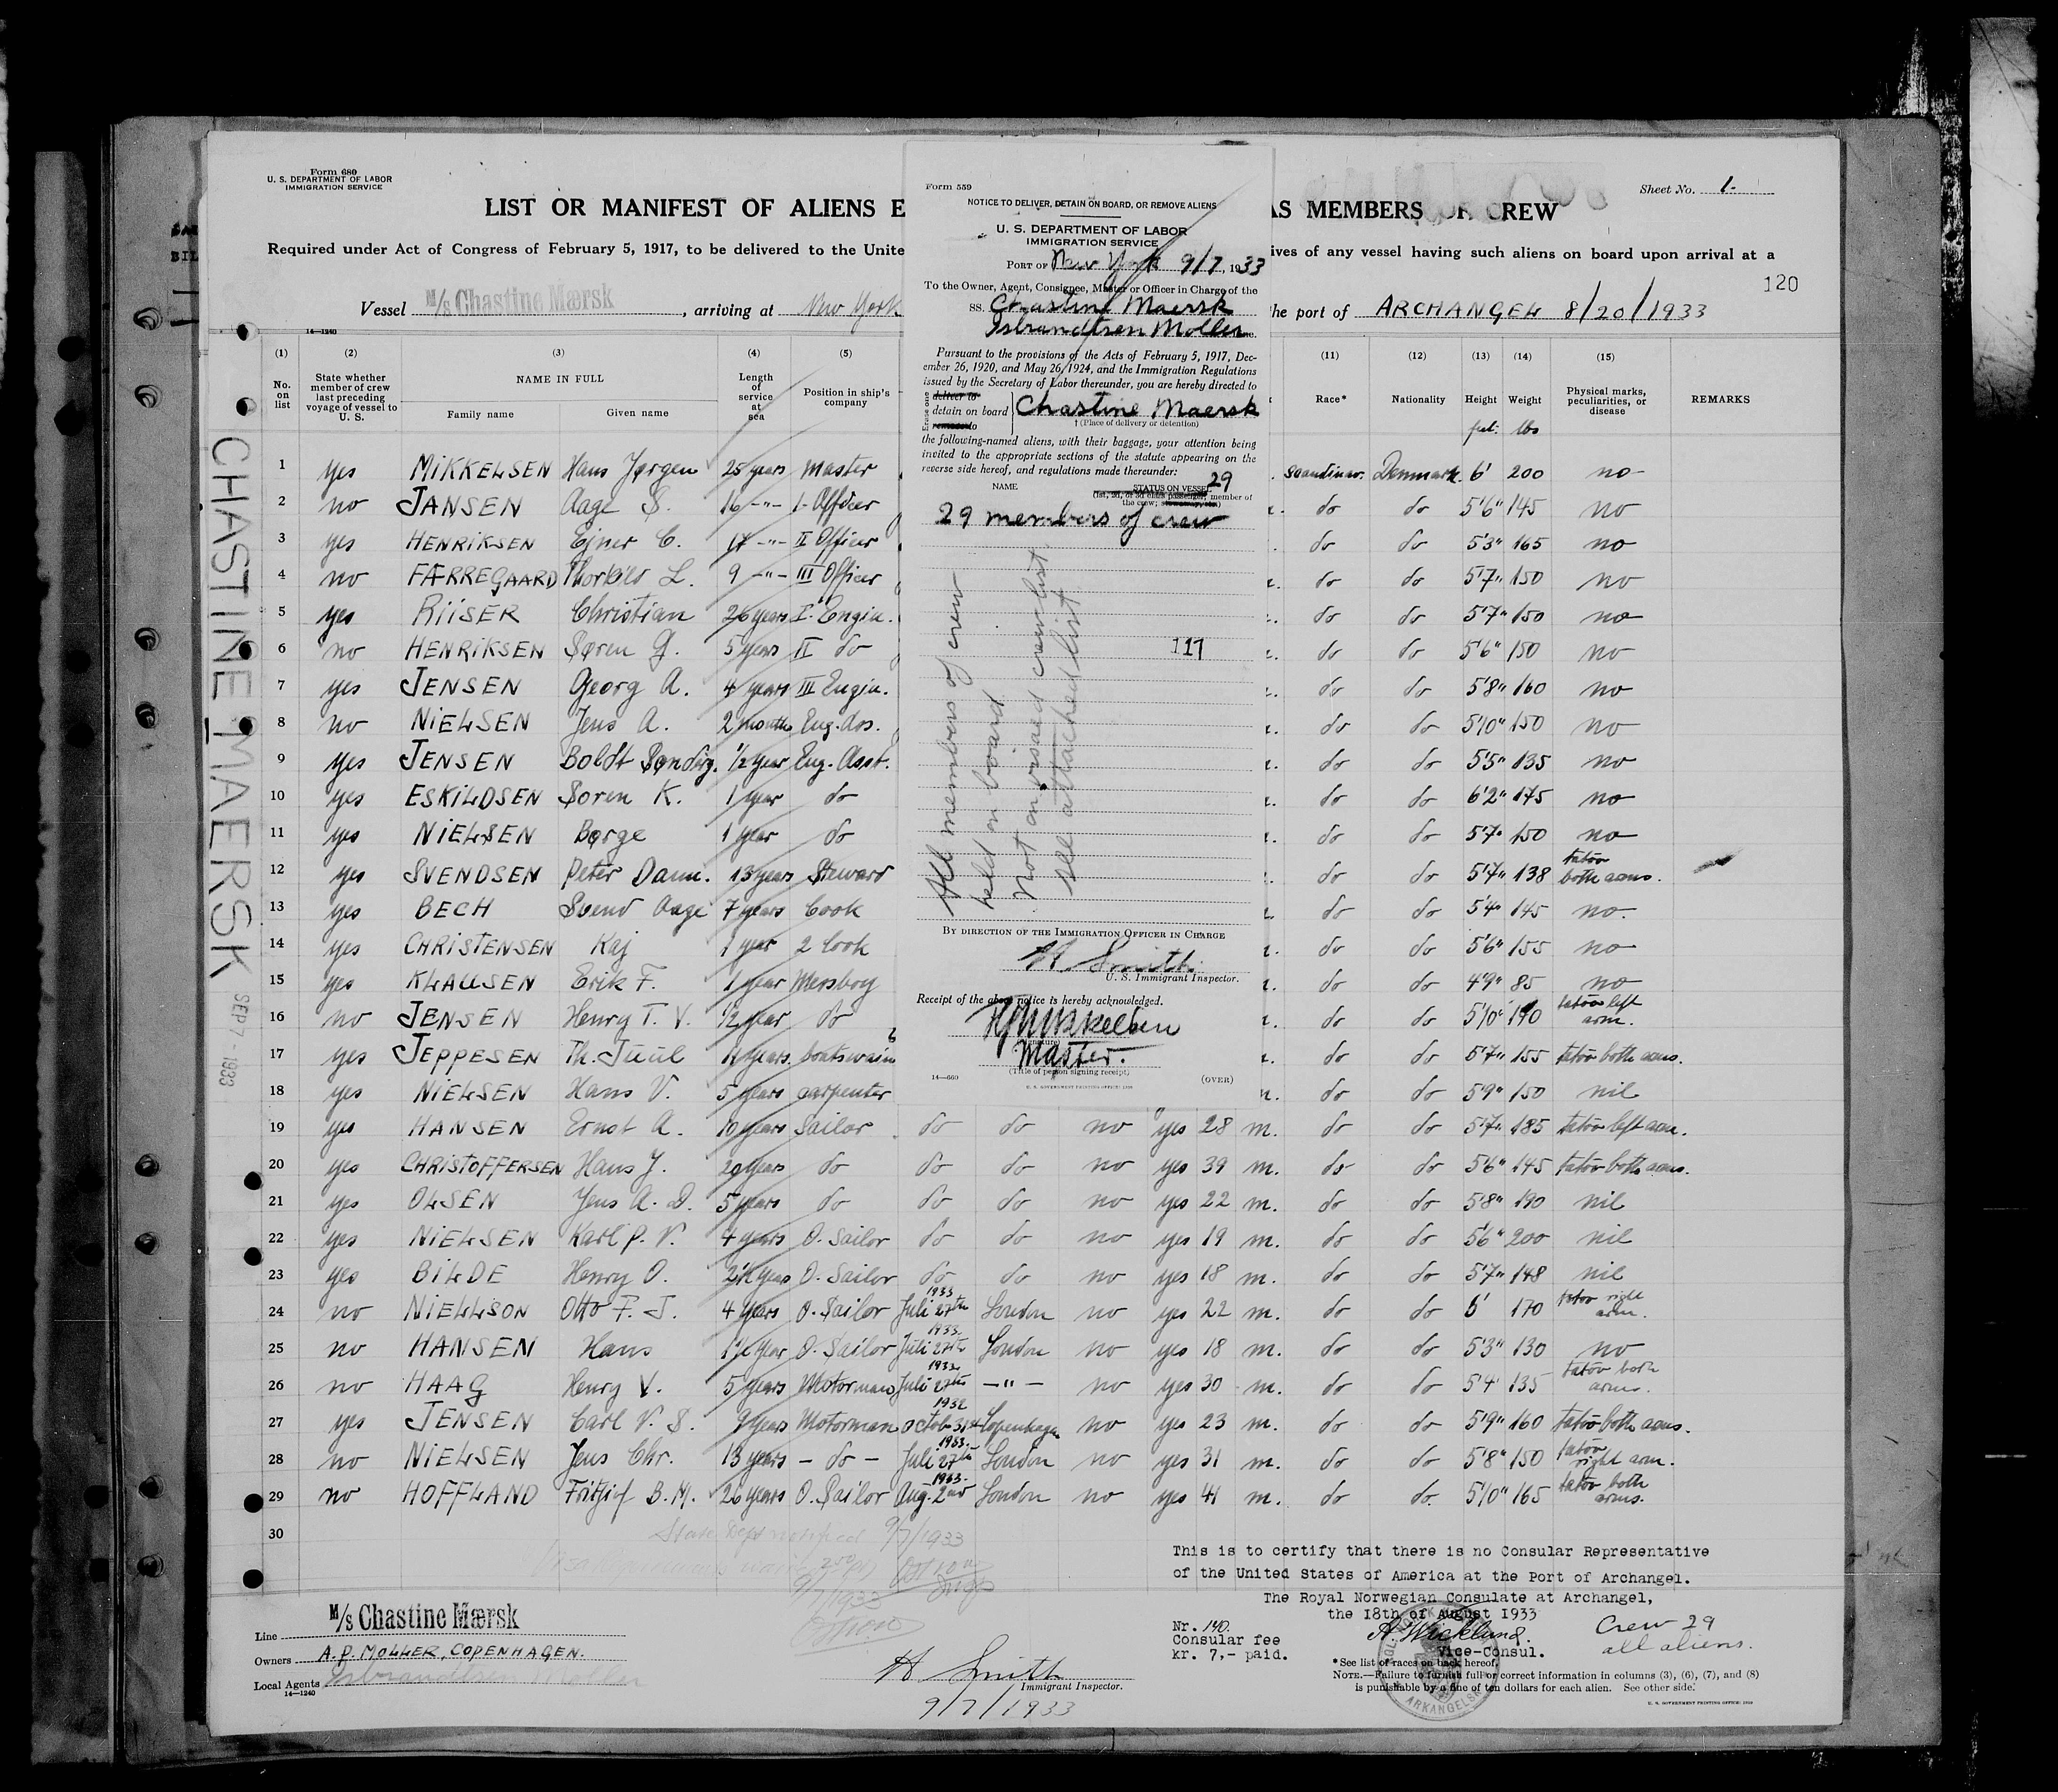 Form 680
U. S. DEPARTMENT OF LABOR
IMMIGRATION SERVICE
Sheet No. 1-
LIST OR MANIFEST OF ALIENS E
AS MEMBERS OF CREW
Required under Act of Congress of February 5, 1917, to be delivered to the Unite
ives of any vessel having such aliens on board upon arrival at a
120
Vessel M/s Chastine Mærsk , arriving at New York
he port of ARCHANGEL 8/20/1933
14—1240
(1) (2) (3) (4) (5) (11) (12) (13) (14) (15)
No. on list
State whether member of crew last preceding voyage of vessel to U. S.
NAME IN FULL
Family name Given name
Length of service at sea
Position in ship's company
Race* Nationality Height Weight
Physical marks, peculiarities, or disease
REMARKS
lbs
1 yes MIKKELSEN Hans Jørgen 25 years Master Scandinav. Denmark. 6' 200 no-
2 no JANSEN Aage S. 16 -"- I-Officer do do 5'6" 145 no
3 yes HENRIKSEN Ejner C. 17 -"- II Officer do do 5'3" 165 no
4 no FÆRREGAARD L. 9 -"- III Officer do do 5'7" 150 no
5 yes RIISER Christian 26 years I. Engin. do do 5'7" 150 no
6 no HENRIKSEN Søren G. 5 years II do do do 5'6" 150 no
7 yes JENSEN Georg A. 4 years III Engin. do do 5'8" 160 no
8 no NIELSEN Jens A. 2 months Eng. Ass. do do 5'10" 150 no
9 yes JENSEN Boldt 1/2 year Eng. Asst. do do 5'5" 135 no
10 yes ESKILDSEN Soren K. 1 year do do do 6'2" 175 no
11 yes NIELSEN Børge 1 year do do do 5'7" 150 no
12 yes SVENDSEN Peter Dam. 13 years Steward do do 5'7" 138 tatov both arms.
13 yes BECH Svend Aage 7 years Cook do do 5'4" 145 no.
14 yes CHRISTENSEN Kaj 1 year 2 Cook do do 5'6" 155 no
15 yes KLAUSEN Erik F. 1 year Messboy do do 4'9" 85 no
16 no JENSEN Henry T. V. 1/2 year do do do 5'10" tatov left arm.
17 yes JEPPESEN Th. Juul years. boatswain do do 5'7" 155 tatov both arms.
18 yes NIELSEN Hans V. 5 years carpenter do do 5'9" 150 nil
19 yes HANSEN Ernst A. 10 years Sailor do do no yes 28 m. do do 5'7" 185 tatov left arm.
20 yes CHRISTOFFERSEN Hans J. 20 years do do do no yes 39 m. do do 5'6" 145 tatov both arms.
21 yes OLSEN Jens A. D. 5 years do do do no yes 22 m. do do 5'8" 190 nil
22 yes NIELSEN Karl P. V. 4 years O. Sailor do do no yes 19 m. do do 5'6" 200 nil
23 yes BILDE Henry O. 2½ years O. Sailor do do no yes 18 m. do do 5'7" 148 nil
24 no NIELLSON Otto F. J. 4 years O. Sailor 1933 Juli 27th London no yes 22 m. do do 6' 170 tatov right arm.
25 no HANSEN Hans 1½ year O. Sailor 1933. Juli 27th London no yes 18 m. do do 5'3" 130 no
26 no HAAG Henry V. 5 years Motorman 1933 Juli 27th —"— no yes 30 m. do do 5'4 135 tatov both arms.
27 yes JENSEN Carl V. S. 9 years Motorman 1932 Octob. 31st Copenhagen no yes 23 m. do do 5'9" 160 tatov both arms.
28 no NIELSEN Jens Chr. 13 years - do - 1933. Juli 27th London no yes 31 m. do do 5'8" 150 tatov right arm.
29 no HOFFLAND Fritjof B. M. 26 years O. Sailor 1933. Aug. 2nd London no yes 41 m. do do. 5'10" 165 tatov both arms.
30
State Dept notified 9/7/1933
9/7/1933
CHASTINE MAERSK
SEP 7 - 1933
Form 559
NOTICE TO DELIVER, DETAIN ON BOARD, OR REMOVE ALIENS
U. S. DEPARTMENT OF LABOR
IMMIGRATION SERVICE
PORT OF New York 9/7, 1933
To the Owner, Agent, Consignee, Master or Officer in Charge of the
SS. Chastine Maersk
Isbrandtsen Moller
Pursuant to the provisions of the Acts of February 5, 1917, Dec-
ember 26, 1920, and May 26, 1924, and the Immigration Regulations
issued by the Secretary of Labor thereunder, you are hereby directed to
Erase one
deliver to
detain on board Chastine Maersk
remove to
† (Place of delivery or detention)
the following-named aliens, with their baggage, your attention being
invited to the appropriate sections of the statute appearing on the
reverse side hereof, and regulations made thereunder:
29
NAME STATUS ON VESSEL
(1st, 2d, or 3d class passenger, member of
the crew;
29 members of crew
All members of crew
held on board
Not on visaed crew list
See attached list
117
BY DIRECTION OF THE IMMIGRATION OFFICER IN CHARGE
H Smith
U. S. Immigrant Inspector.
Receipt of the above notice is hereby acknowledged.
HJMikkelsen
Master.
(Title of person signing receipt)
14—660
(OVER)
U. S. GOVERNMENT PRINTING OFFICE
This is to certify that there is no Consular Representative
of the United States of America at the Port of Archangel.
The Royal Norwegian Consulate at Archangel,
the 18th of August 1933
Nr. 140.
Consular fee
kr. 7,- paid.
A Wicklund.
Vice-Consul.
Crew 29
all aliens.
Line M/s Chastine Mærsk
Owners A. P. MOLLER, COPENHAGEN.
Local Agents Isbrandtsen Moller
14—1240
H Smith
Immigrant Inspector.
9/7/1933
*See list of races on back hereof.
NOTE.—Failure to furnish full or correct information in columns (3), (6), (7), and (8)
is punishable by a fine of ten dollars for each alien. See other side.
U. S. GOVERNMENT PRINTING OFFICE
ARKANGELSK